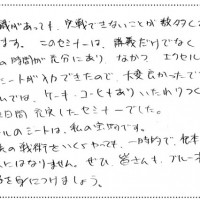 識があっても、実戦できないことが数多く
ます。このセミナーは、講義だけでなく
の時間が充分にあり、なおかつエクセル
シートが入力できたので、大変良かったで
ムでは、ケーキ・コーヒーもありいたれりつく
2日間 充実したセミナーでした。
ルのシートは、私の宝物です。
の戦術をいくらやっても、一時的で、根本
にはなりません。ぜひ、皆さんも、ブルー
を身につけましょう。